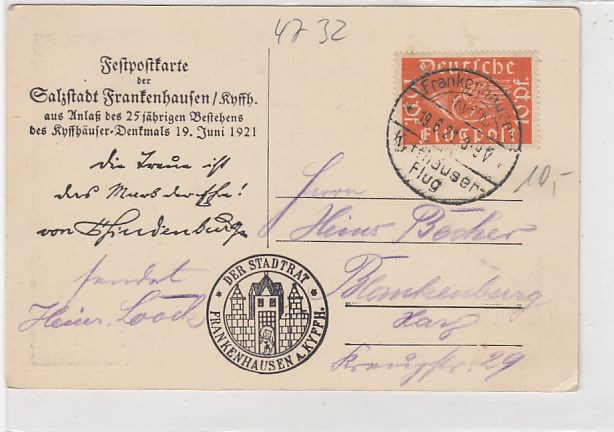 47 32
Festpostkarte
der
Salzstadt Frankenhausen/Kyffh.
aus Anlaß des 25jährigen Bestehens
des Kyffhäuser-Denkmals 19. Juni 1921
Die Treue ist
das Mark der Ehre!
von Hindenburg
sendet
Heinr.
DER STADTRAT
FRANKENHAUSEN A. KYFFH.
Deutsche
Flugpost
Frankenhausen
19.6.21 8-9V
Kyffhäuser-
Flug
10,-
Herrn
Heinr. Böcher
Blankenburg
Harz
29